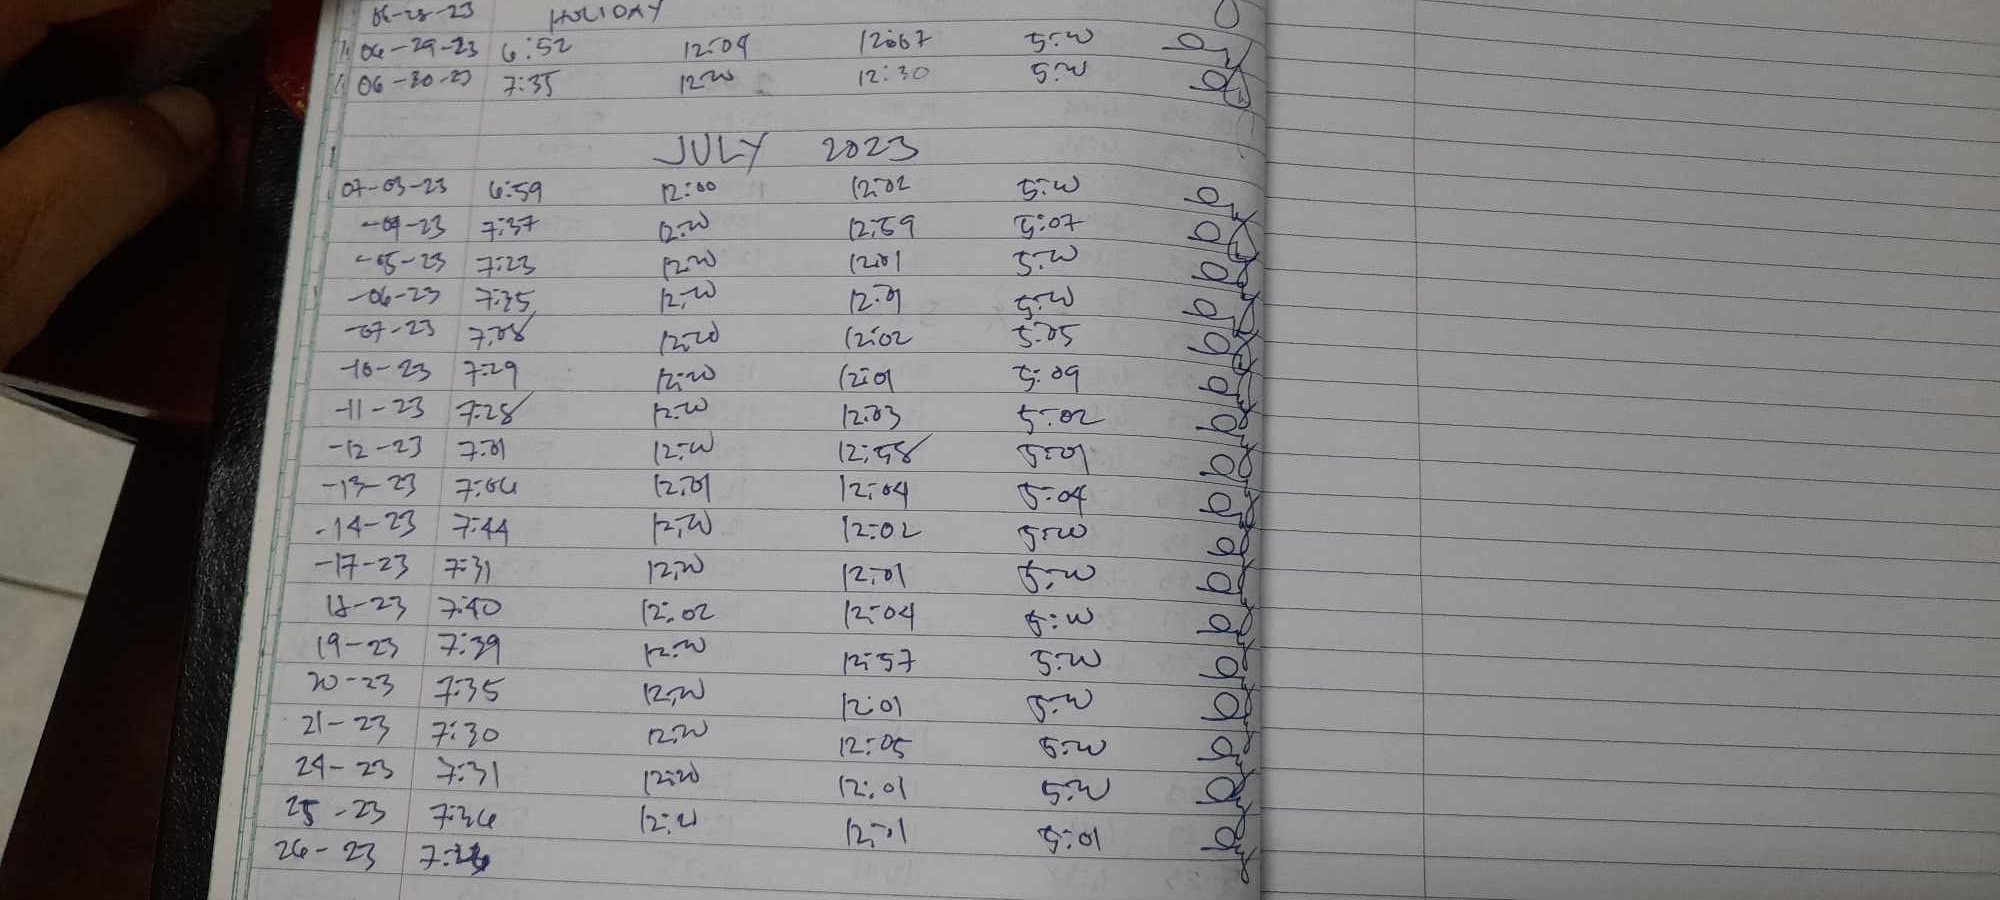 06-28-23 HOLIDAY
06-29-23 6:52 12:04 12:07 5:00
06-30-23 7:35 12:00 12:30 5:00
JULY 2023
07-03-23 6:59 12:00 12:02 5:00
-04-23 7:37 12:00 12:59 5:07
-05-23 7:23 12:00 12:01 5:00
-06-23 7:35 12:00 12:01 5:00
-07-23 7:08 12:00 12:02 5:05
-10-23 7:29 12:00 12:01 5:09
-11-23 7:28 12:00 12:03 5:02
-12-23 7:01 12:00 12:58 5:01
-13-23 7:06 12:01 12:04 5:04
-14-23 7:44 12:00 12:02 5:00
-17-23 7:31 12:00 12:01 5:00
18-23 7:40 12:02 12:04 5:00
19-23 7:39 12:00 12:57 5:00
20-23 7:35 12:00 12:01 5:00
21-23 7:30 12:00 12:05 5:00
24-23 7:31 12:00 12:01 5:00
25-23 7:36 12:00 12:01 5:01
26-23